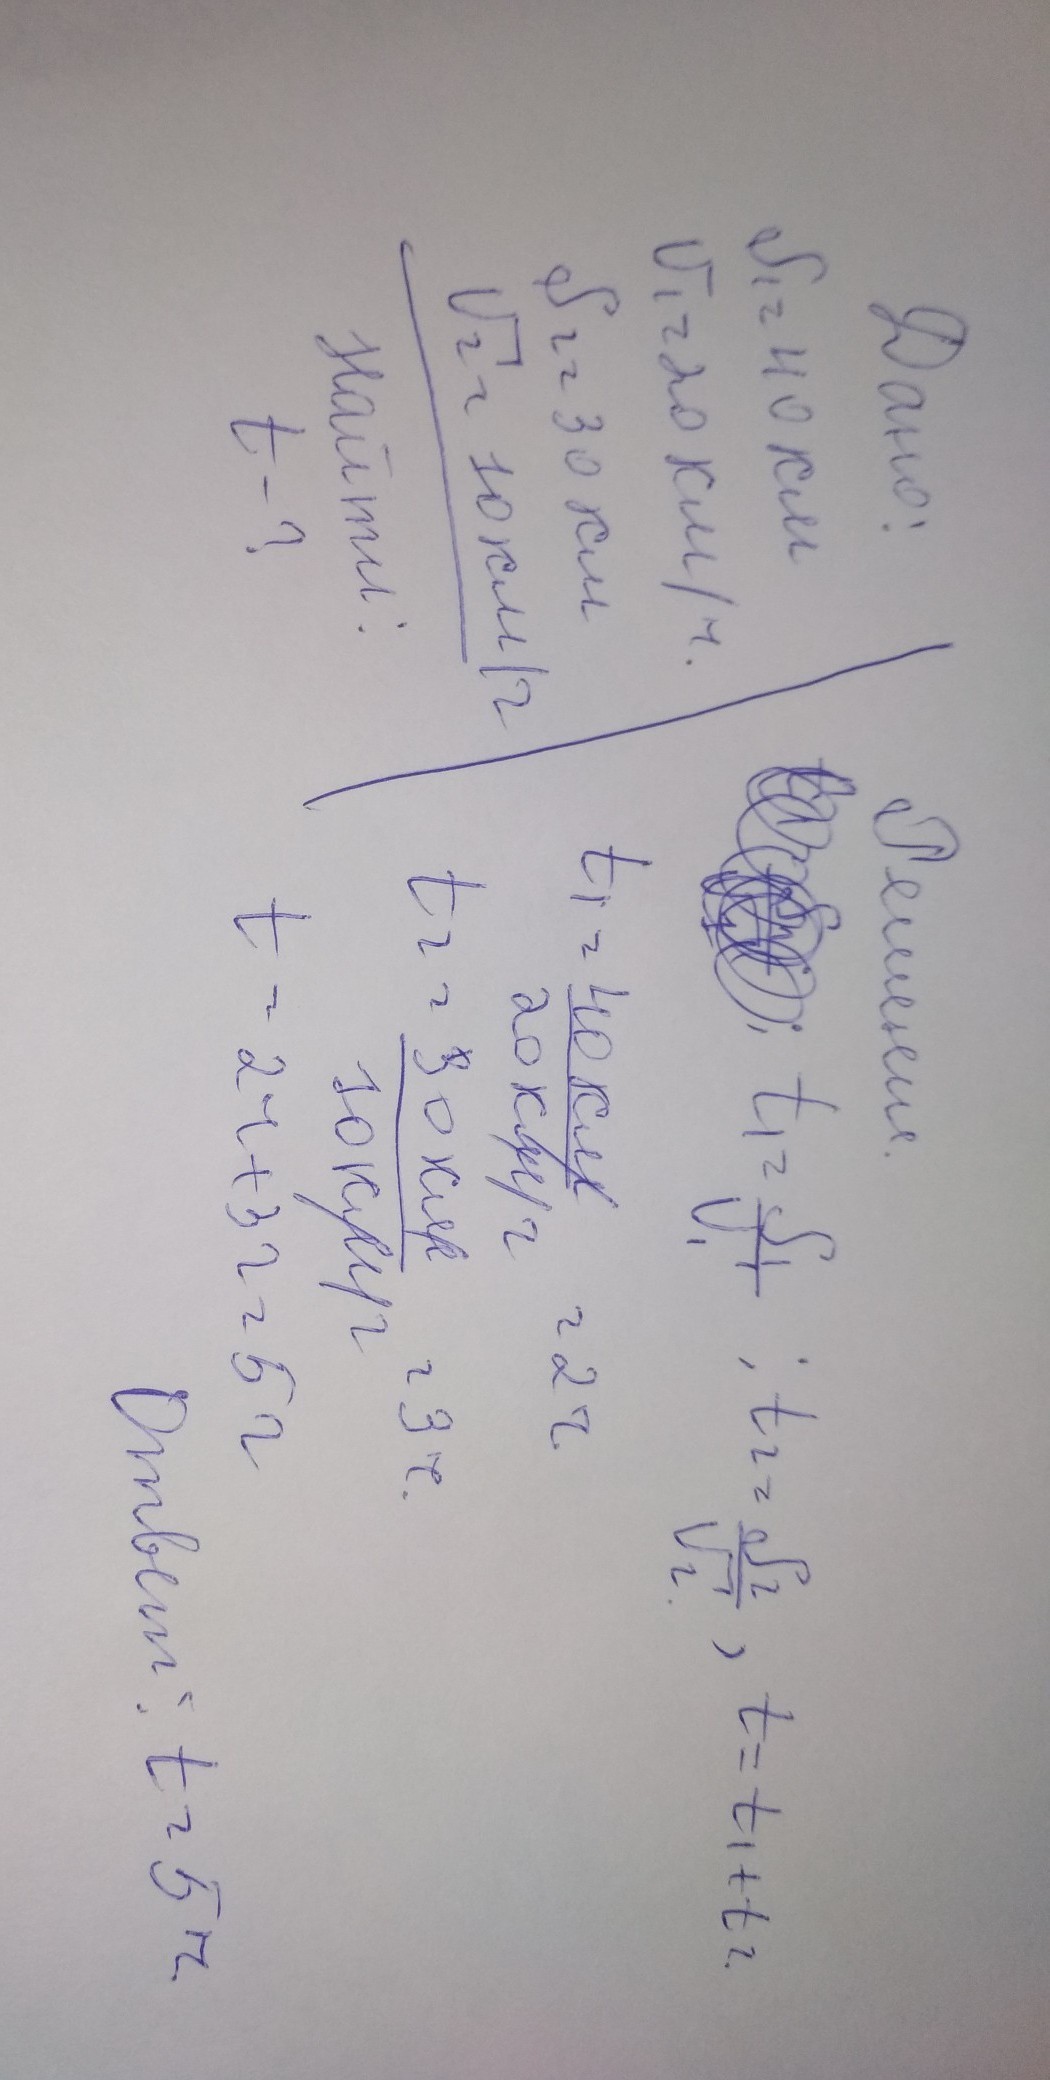 Дано:
S1 = 40 км
V1 = 20 км/ч.
S2 = 30 км
V2 = 10 км/ч
Найти:
t - ?
Решение.
; t1 = S1/V1 ; t2 = S2/V2. , t = t1 + t2.
t1 = 40 км / 20 км/ч = 2 ч.
t2 = 30 км / 10 км/ч = 3 ч.
t = 2ч + 3ч = 5 ч
Ответ: t = 5 ч.